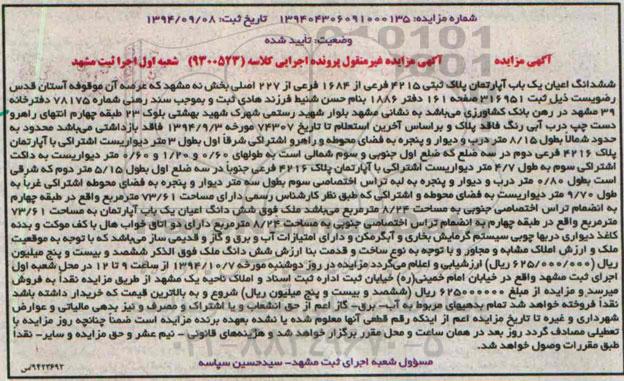 شماره مزایده: ۱۳۹۴۰۴۳۰۶۰۹۱۰۰۰۱۳۵ تاریخ ثبت: ۱۳۹۴/۰۹/۰۸
وضعیت: تایید شده
آگهی مزایده آگهی مزایده غیرمنقول پرونده اجرایی کلاسه (۹۳۰۰۵۲۳) شعبه اول اجرا ثبت مشهد
ششدانگ اعیان یک باب آپارتمان پلاک ثبتی ۴۲۱۵ فرعی از ۱۶۸۴ فرعی از ۲۲۷ اصلی بخش نه مشهد که عرصه آن موقوفه آستان قدس
رضویست ذیل ثبت ۳۱۶۹۵۱ صفحه ۱۶۱ دفتر ۱۸۸۶ بنام حسن شنیط فرزند هادی ثبت و بموجب سند رهنی شماره ۷۸۱۷۵ دفترخانه
۳۹ مشهد در رهن بانک کشاورزی می‌باشد به نشانی مشهد بلوار شهید رستمی شهرک شهید بهشتی بلوک ۲۳ طبقه چهارم انتهای راهرو
دست چپ درب آبی رنگ فاقد پلاک و براساس آخرین استعلام تا تاریخ ۷۴۳۰۷ مورخه ۱۳۹۴/۹/۳ فاقد بازداشتی می‌باشد محدود به
حدود شمالاً بطول ۸/۱۵ متر درب و دیوار و پنجره به فضای محوطه و راهرو اشتراکی شرقاً اول بطول ۳ متر دیواریست اشتراکی با آپارتمان
پلاک ۴۲۱۶ فرعی دوم در سه ضلع که ضلع اول جنوبی و سوم شمالی است به طولهای ۰/۶۰ و ۱/۲۰ و ۰/۶۰ متر دیواریست به داکت
اشتراکی سوم به طول ۴/۷ متر دیواریست اشتراکی با آپارتمان پلاک ۴۲۱۶ فرعی جنوباً در سه ضلع اول بطول ۵/۱۵ متر دوم که شرقی
است بطول ۰/۸۰ متر درب و دیوار و پنجره به لبه تراس اختصاصی سوم بطول سه متر دیوار و پنجره به فضای محوطه اشتراکی غرباً به
طول ۹/۷۰ متر دیواریست به فضای محوطه و اشتراکی که طبق نظر کارشناس رسمی دارای مساحت ۷۳/۶۱ مترمربع واقع در طبقه چهارم
به انضمام تراس اختصاصی جنوبی به مساحت ۸/۲۴ مترمربع می‌باشد ملک فوق شش دانگ اعیان یک باب آپارتمان به مساحت ۷۳/۶۱
مترمربع واقع در طبقه چهارم به انضمام تراس اختصاصی جنوبی و مساحت ۸/۲۴ مترمربع دارای دو اتاق خواب هال با کف موکت و بدنه
کاغذ دیواری درها چوبی سیستم گرمایش بخاری و آبگرمکن و دارای امتیازات آب و برق و گاز و قدیمی ساز می‌باشد که با توجه به موقعیت
ملک و ارزش املاک مشابه و مجاور و با توجه به نوع ساخت و قدمت بنا ارزش شش دانگ ملک فوق الذکر ششصد و بیست و پنج میلیون
ریال (۶۲۵/۰۰۰/۰۰۰ ریال) ارزشیابی و اعلام می‌گردد مزایده در روز دوشنبه مورخه ۱۳۹۴/۱۰/۰۷ از ساعت ۹ تا ۱۲ در محل شعبه اول
اجرای ثبت مشهد واقع در خیابان امام خمینی(ره) خیابان ثبت اداره ثبت اسناد و املاک ناحیه یک مشهد از طریق مزایده نقداً به فروش
میرسد و مزایده از مبلغ ۶۲۵۰۰۰۰۰۰ ریال (ششصد و بیست و پنج میلیون ریال) شروع و به بالاترین قیمت که خریدار داشته باشد
نقداً فروخته خواهد شد تمام بدهیهای مربوط به آب- برق- گاز اعم از حق انشعاب و یا اشتراک و مصرف و نیز بدهی مالیاتی و عوارض
شهرداری و غیره تا تاریخ مزایده اعم از اینکه رقم قطعی آنها معلوم شده یا نشده بعهده برنده مزایده است ضمناً چنانچه روز مزایده با
تعطیلی مصادف گردد روز بعد در همان ساعت و محل مقرر برگزار خواهد شد و هزینه‌های قانونی - نیم عشر و حق مزایده و سایر- نقداً
طبق مقررات وصول خواهد شد.
مسؤول شعبه اجرای ثبت مشهد- سیدحسین سپاسه
۹۴۲۳۶۹۲/س